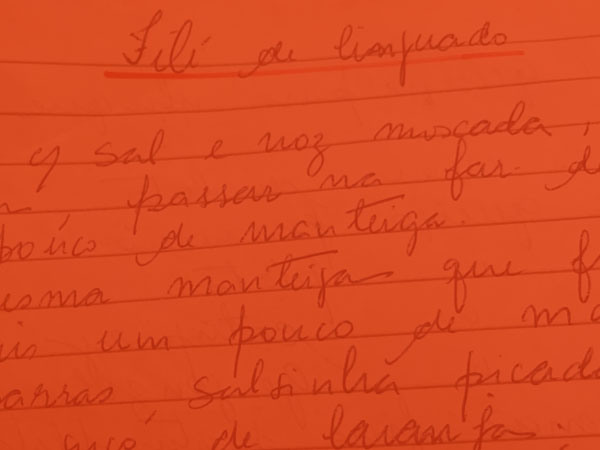 Filé de linguado
c/ sal e noz moscada,
passar na far. de
pouco de manteiga.
esma manteiga que f
is um pouco de ma
arras, salsinha picada
suco de laranja.